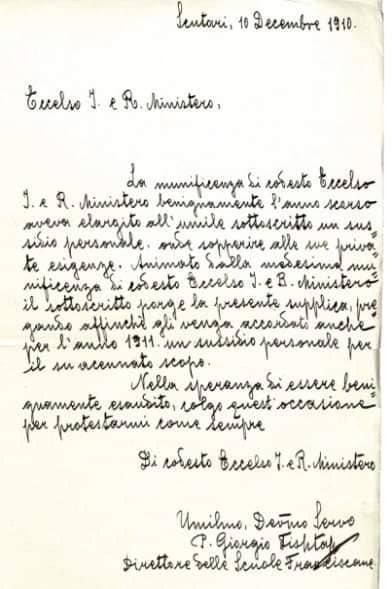 Scutari, 10 Decembre 1910.
Eccelso I. e R. Ministero,
La munificenza di codesto Eccelso
I. e R. Ministero benignamente l'anno scorso
aveva elargito all'umile sottoscritto un sus=
sidio personale, onde sopperire alle sue priva=
te esigenze. Animato dalla medesima mu=
nificenza di codesto Eccelso I. e R. Ministero
il sottoscritto porge la presente supplica, pre=
gando affinchè gli venga accordato anche
per l'anno 1911. un sussidio personale per
il su acennato scopo.
Nella speranza di essere beni=
gnamente esaudito, colgo quest'occasione
per protestarmi come sempre
Di codesto Eccelso I. e R. Ministero
Umilmo, Devmo Servo
P. Giorgio Fishta
Direttore delle Scuole Francescane